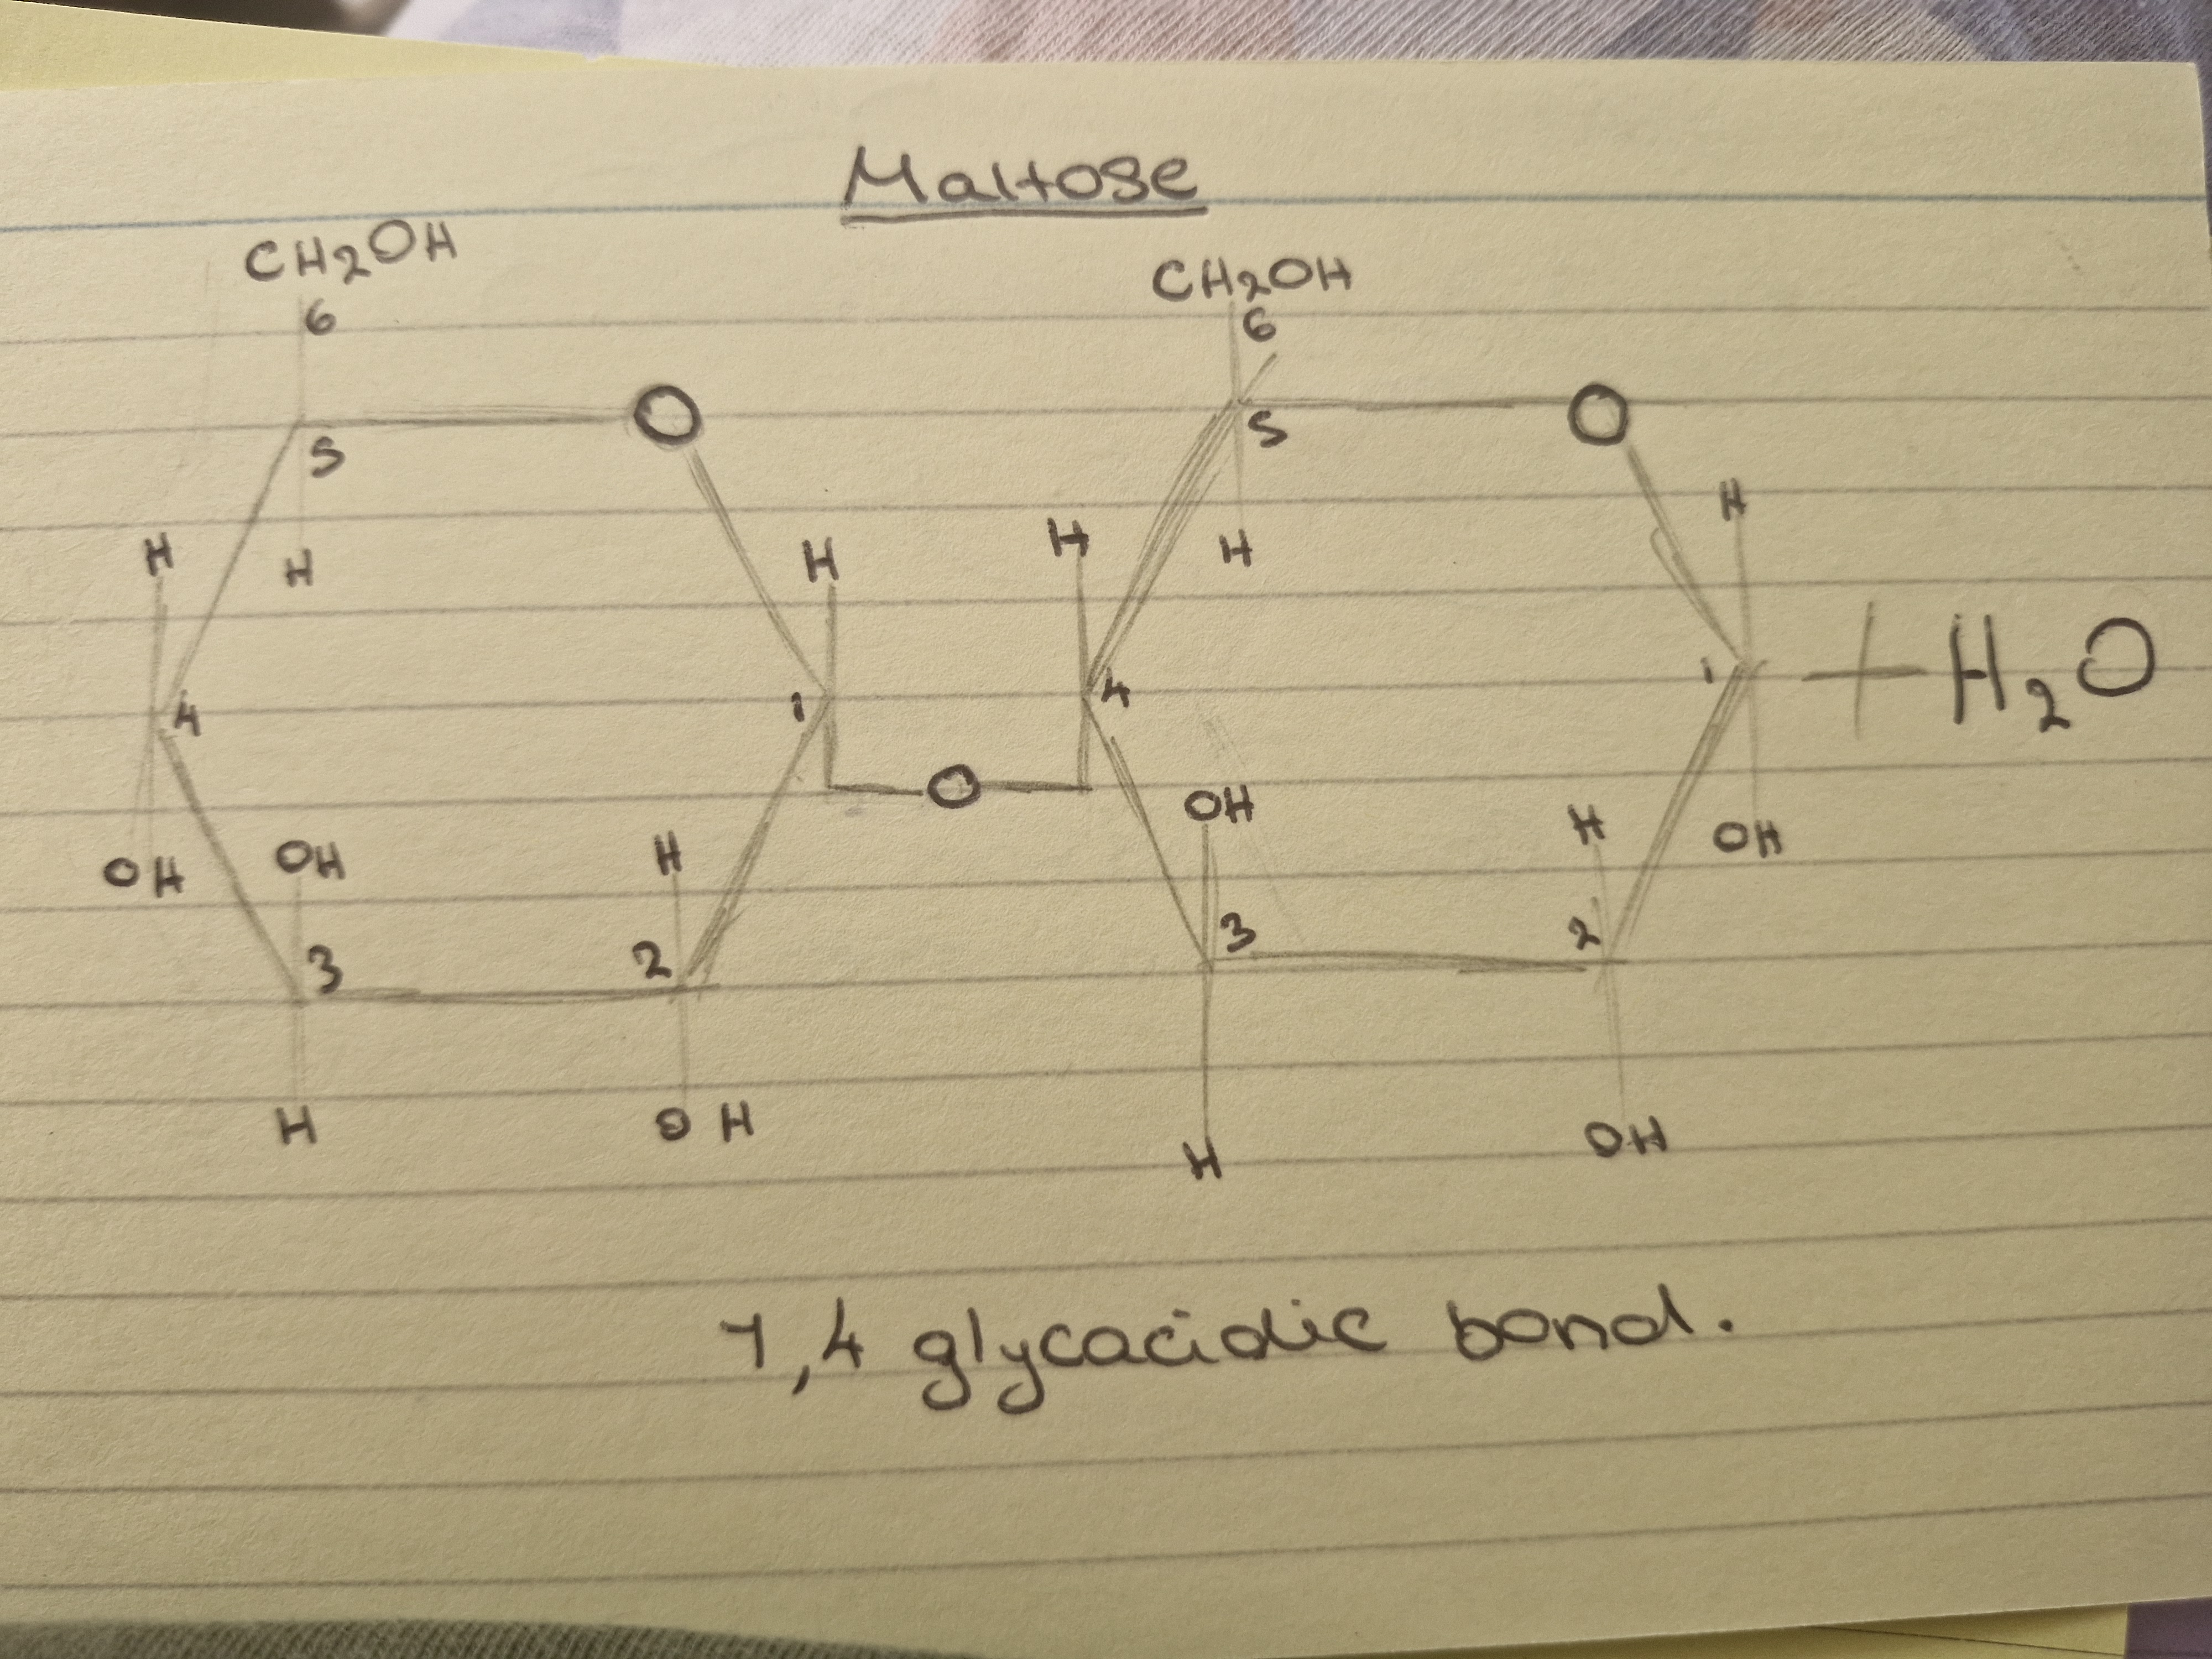 Maltose
CH2OH CH2OH
6 6
O O
5 5
H H
H H H H H
1 4 1 + H2O
4
O
OH OH H OH H OH
3 2 3 2
H OH H OH
1,4 glycacidic bond.